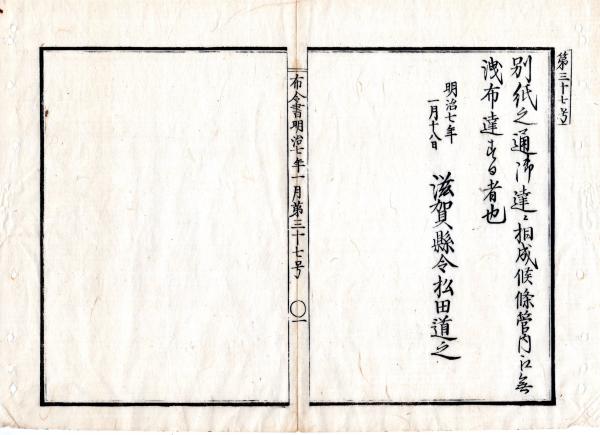 第三十七号
別紙之通御達ニ相成候條管内江無
洩布達する者也
明治七年
一月十八日
滋賀縣令松田道之
布令書明治七年一月第三十七号
〇一